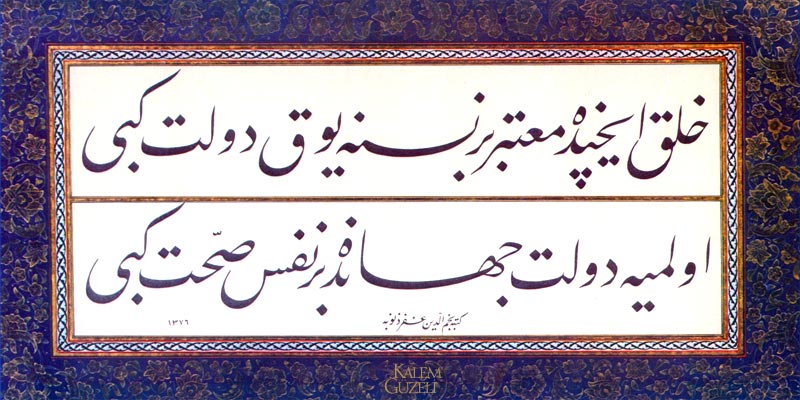 خلق ایچنده معتبر بر نسنه یوق دولت کبی
اولمیه دولت جهانده بر نفس صحّت کبی
کتبه نجم الدین غفر ذنوبه
۱۳۷۶
KALEM
GUZELI